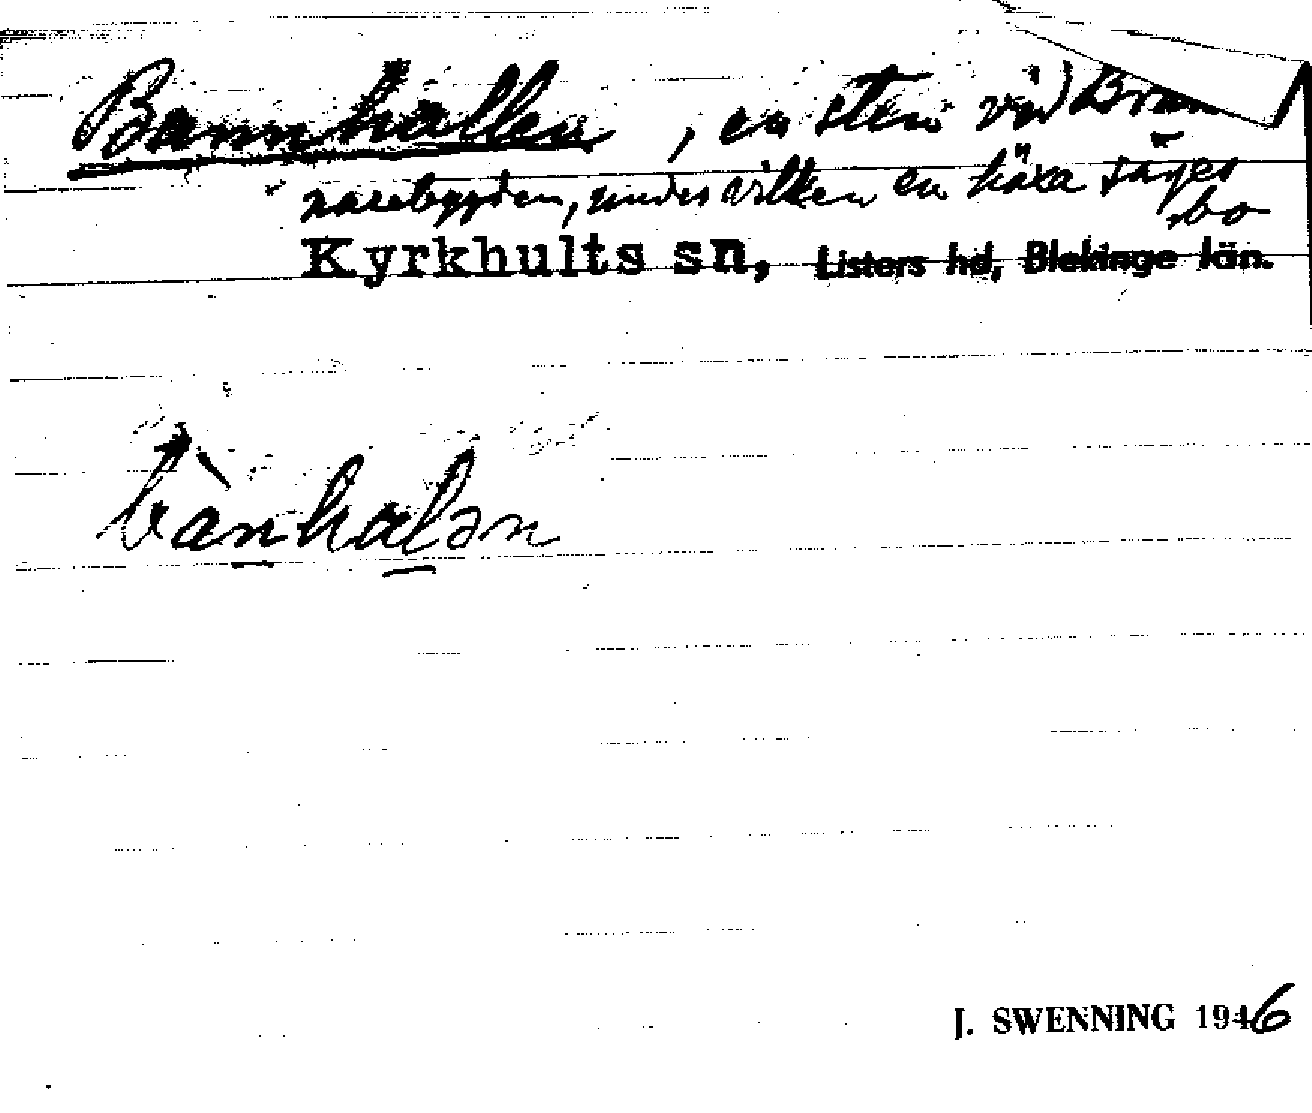 Bannhallen, en sten vid Bran
narebygden, under vilken en häxa säges
bo
Kyrkhults sn, Listers hd, Blekinge län.
bànhalən
J. SWENNING 1946